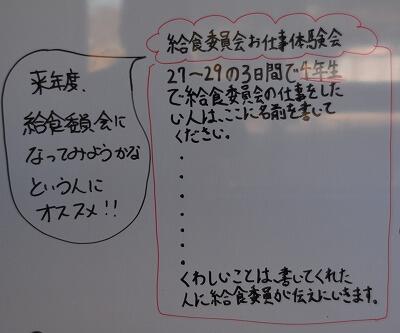 給食委員会お仕事体験会
27〜29の3日間で4年生
で給食委員会の仕事をした
い人は、ここに名前を書いて
ください。
・
・
・
・
・
・
・
くわしいことは、書いてくれた
人に給食委員が伝えにいきます。
来年度、
給食委員会に
なってみようかな
という人に
オススメ!!